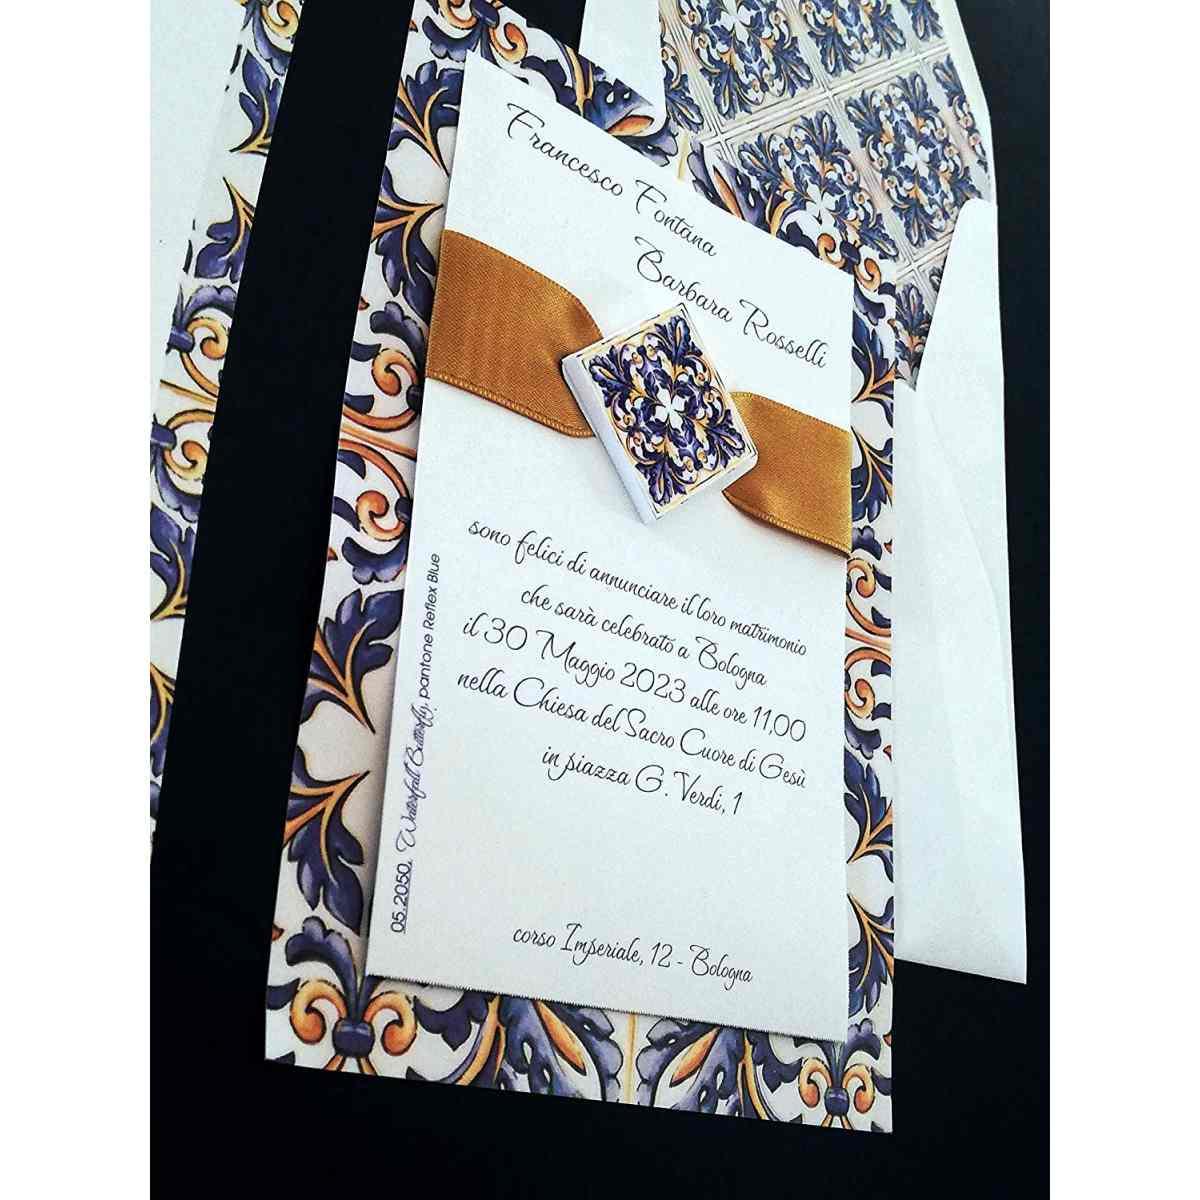 Francesco Fontana
Barbara Rosselli
sono felici di annunciare il loro matrimonio
che sarà celebrato a Bologna
il 30 Maggio 2023 alle ore 11,00
nella Chiesa del Sacro Cuore di Gesù
in piazza G. Verdi, 1
corso Imperiale, 12 - Bologna
05.2050, Waterfall Butterfly, pantone Reflex Blue